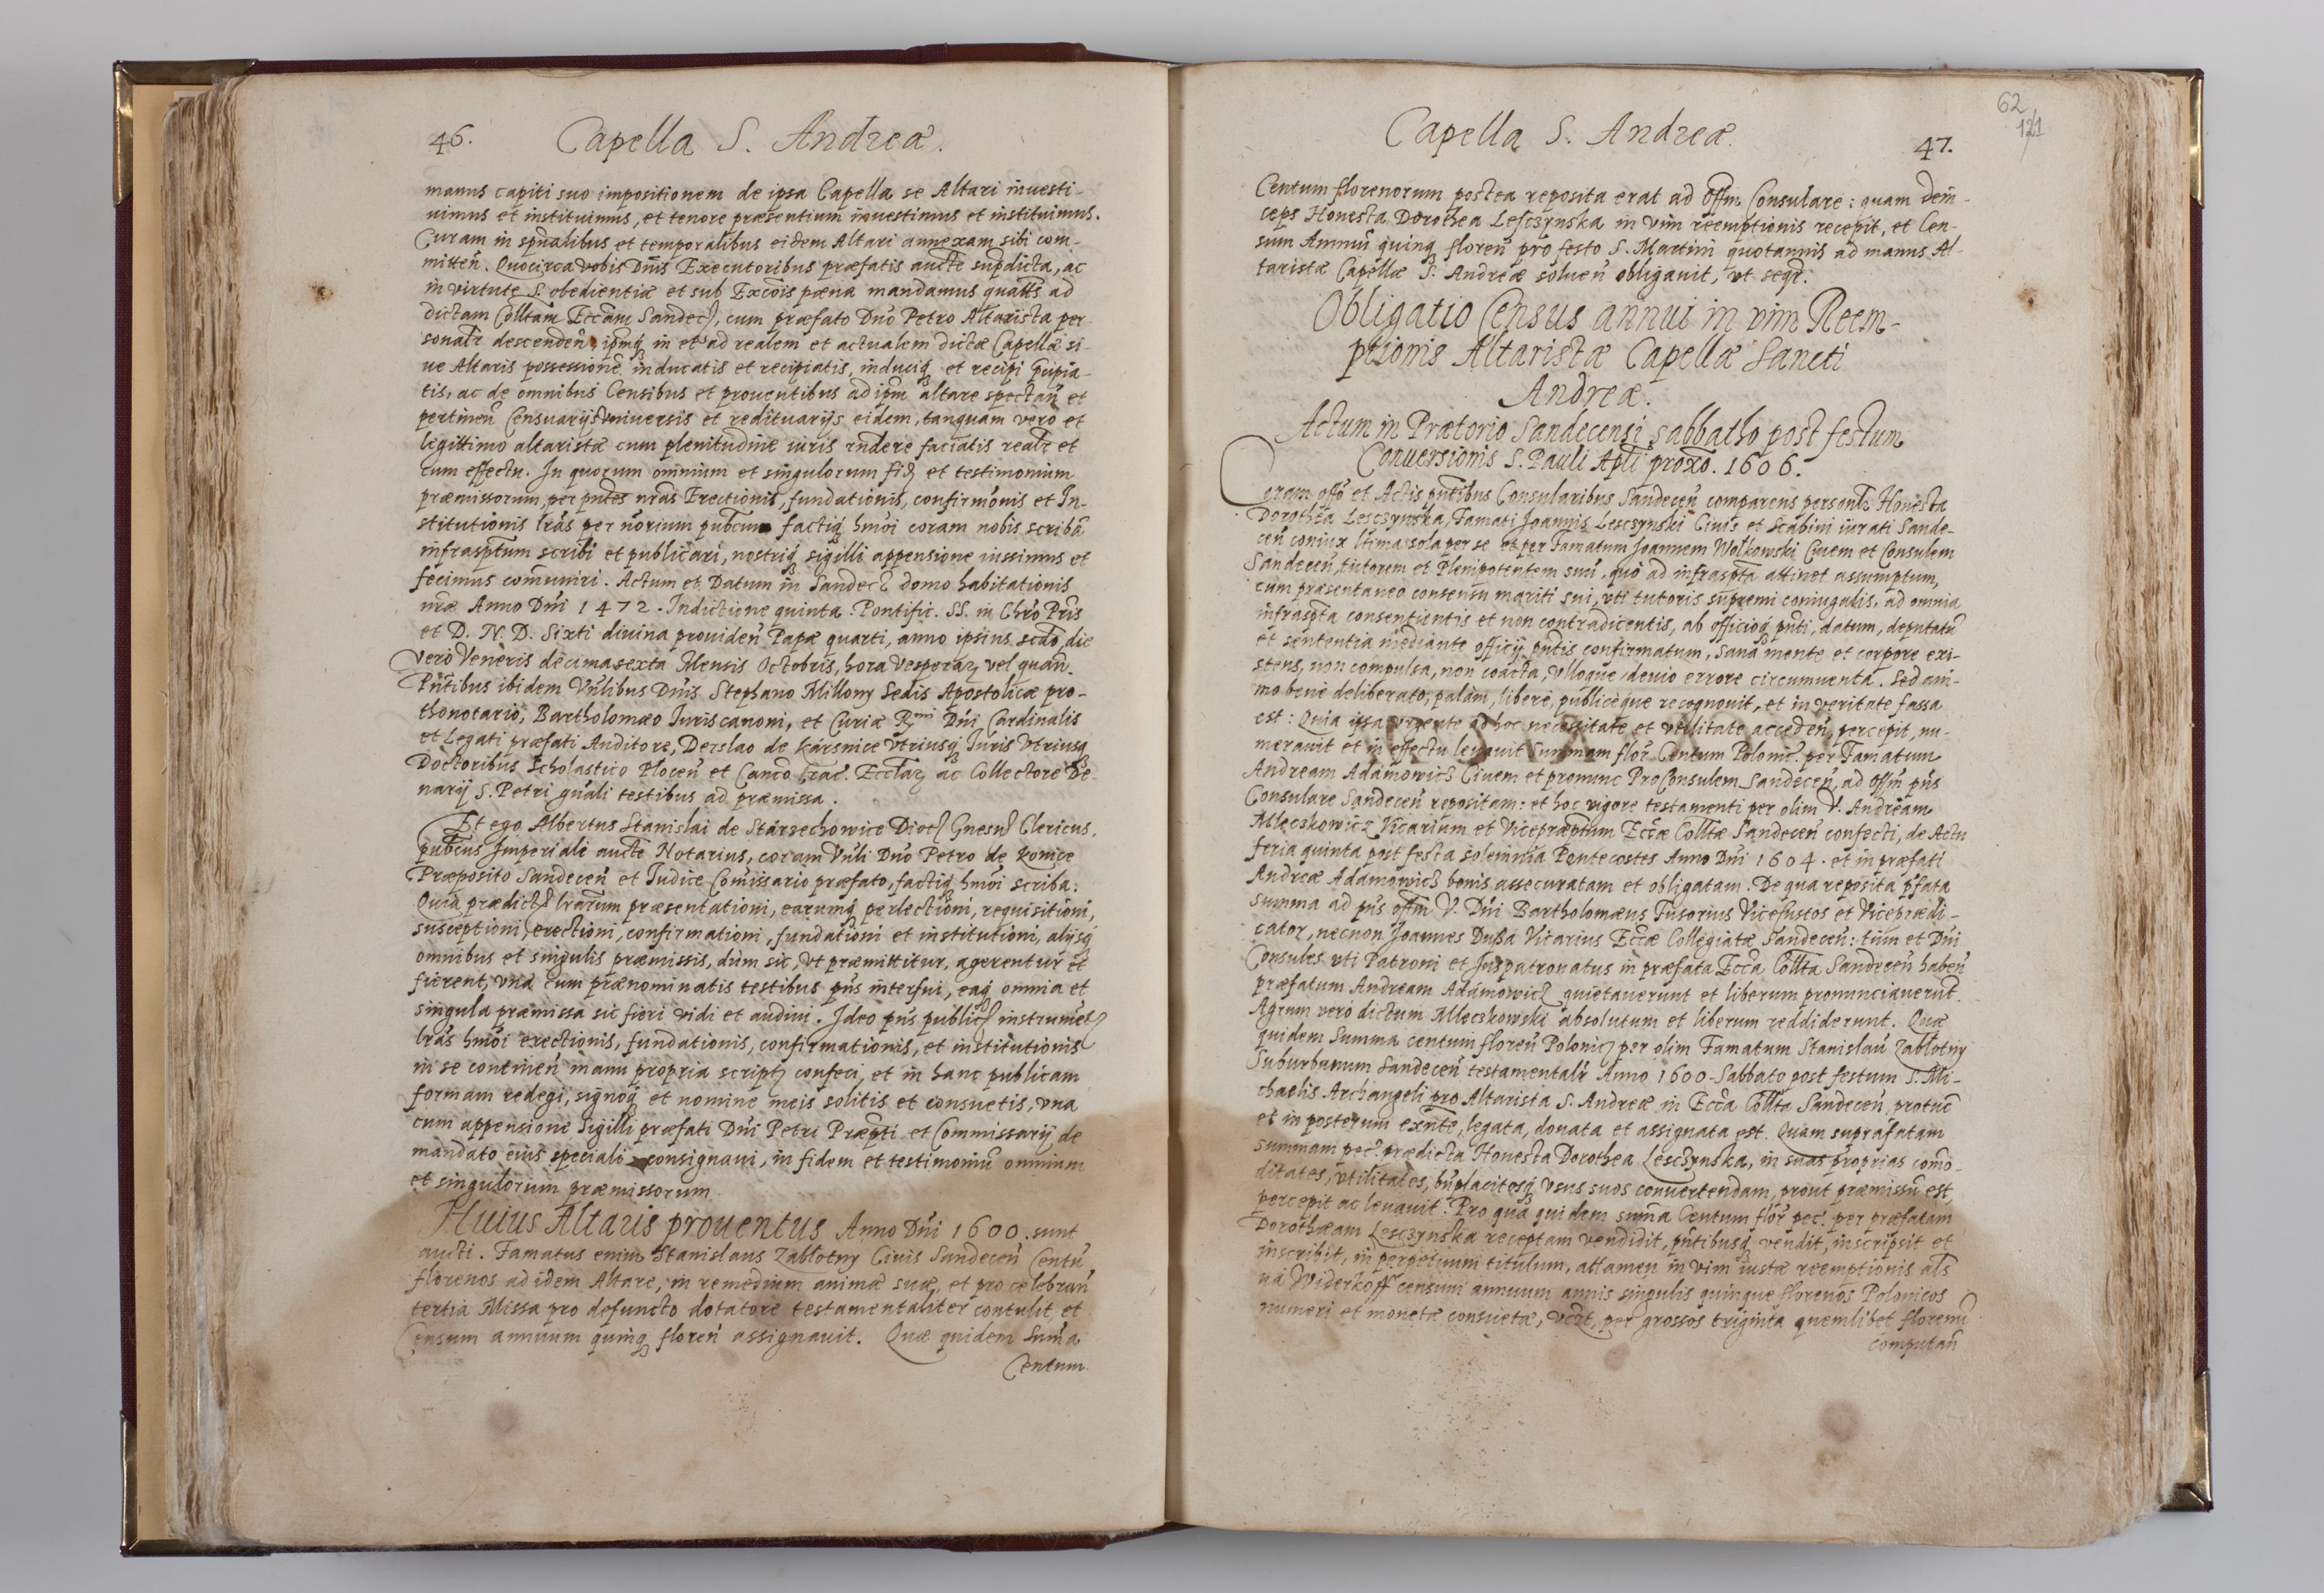 46. Capella S. Andreæ.
manus capiti suo impositionem de ipsa Capella se Altari inuesti-
uimus et instituimus, et tenore præsentium inuestimus et instituimus.
Curam in spũalibus et temporalibus eidem Altari annexam sibi com-
mitteñ. Quocirca vobis Dñis Executoribus præfatis aucte supdicta, ac
in virtute S. obedientiæ et sub Excõis pæna mandamus quatts ad
dictam Colltam Eccam Sandec, cum præfato Dño Petro Altarista per
sonalr descendeñ, ipmq in et ad realem et actualem dictæ Capellæ si-
ue Altaris possessione inducatis et recipiatis, induciq et recipi
tis, ac de omnibus Censibus et prouentibus ad ipm altare spectañ et
pertineñ Censuarijs vniuersis et redituarijs eidem, tanquam vero et
legittimo altaristæ cum plenitudine iuris rñdere faciatis realr et
cum effectu. In quorum omnium et singulorum fid et testimonium
præmissorum, per pñtes nras Erectionis, fundationis, confirmõnis et In-
stitutionis lras per norium pubcum factiq hmoi coram nobis scribã
infrasptum scribi et publicari, nostriq sigilli appensione iussimus et
fecimus comuniri. Actum et Datum in Sandec domo habitationis
nræ Anno Dni 1472. Indictione quinta. Pontific. SS. in Chro Pris
et D. N. D. Sixti diuina prouideñ Papæ quarti, anno ipsius scdo, die
vero Veneris decima sexta Mensis Octobris, hora vesperaꝝ vel quañ.
Pñtibus ibidem Vñlibus Dnis Stephano Millony Sedis Apostolicæ pro-
thonotario, Bartholomæo Iuris canoni, et Curiæ Rmi Dni Cardinalis
et Legati præfati Auditore, Derslao de Kársnice vtriusq Iuris vtriusq
Doctoribus Scholastico Ploceñ et Canco Crac. Ecclaꝝ ac Collectore De-
narij S. Petri gñali testibus ad præmissa.
Et ego Albertus Stanislai de Stárzechowice Dioc Gnesn Clericus,
pubcus Imperiali aucte Notarius, coram Vñli Dño Petro de Konice
Præposito Sandeceñ et Iudice Comissario præfato, factiq hmoi scriba:
Quia prædict lrarum præsentationi, earumq perlectioni, requisitioni,
susceptioni, erectioni, confirmationi, fundationi et institutioni, alijsq
omnibus et singulis præmissis, dum sic, vt præmittitur, agerentur et
fierent, vna cum prænominatis testibus pñs interfui, eaq omnia et
singula præmissa sic fieri vidi et audiui. Ideo pñs public instrumet
lras hmoi erectionis, fundationis, confirmationis, et institutionis
in se contineñ manu propria script confeci, et in hanc publicam
formam redegi, signoq et nomine meis solitis et consuetis, vna
cum appensione Sigilli præfati Dni Petri Præpti et Commissarij de
mandato eius speciali consignaui, in fidem et testimoniũ omnium
et singulorum præmissorum.
Huius Altaris prouentus Anno Dni 1600. sunt
aucti. Famatus enim Stanislaus Zabłotny Ciuis Sandeceñ Centũ
florenos ad idem Altare, in remedium animæ suæ, et pro celebrañ
tertia Missa pro defuncto dotatore testamentaliter contulit, et
Censum annuum quinq floreñ assignauit. Quæ quidem Suma
Centum.
Capella S. Andreæ. 47.
62
121
Centum florenorum postea reposita erat ad Offm Consulare: quam dein-
ceps Honesta Dorothea Lesczynska in vim reemptionis recepit, et Cen-
sum Annuũ quinq floreñ pro festo S. Martini quotannis ad manus Al-
taristæ Capellæ S. Andreæ solueñ obligauit, vt seqr.
Obligatio Census annui in vim Reem-
ptionis Altaristæ Capellæ Sancti
Andreæ.
Actum in Prætorio Sandecensi sabbatho post festum
Conuersionis S. Pauli Apli proxo. 1606.
Coram offo et Actis pñtibus Consularibus Sandeceñ comparens personlr Honesta
Dorothea Lesczynska, Famati Joannis Lesczynski Ciuis et Scabini iurati Sande-
ceñ coniux ltima sola per se et per Famatum Joannem Wolkowski Ciuem et Consulem
Sandeceñ, tutorem et Plenipotentem suũ, quo ad infraspta attinet assumptum,
cum præsentaneo consensu mariti sui, vti tutoris supremi coniugalis, ad omnia
infraspta consentientis et non contradicentis, ab officioq pñti, datum, deputatũ
et sententia mediante officij pñtis confirmatum, sana mente et corpore exi-
stens, non compulsa, non coacta, vlloque deuio errore circumuenta. Sed ani-
mo bene deliberato, palam, libere, publiceque recognouit, et in veritate fassa
est: Quia ipsa vrgente ad hoc necessitate et vtilitate accedeñ, percepit, nu-
merauit et in effectu leuauit Summam flor Centum Polonic. per Famatum
Andream Adamowicz Ciuem et pronunc ProConsulem Sandeceñ, ad Offm pñs
Consulare Sandeceñ repositam: et hoc vigore testamenti per olim V. Andream
Mleczkowicz Vicarium et Vicepræptum Eccæ Colltæ Sandeceñ confecti, de Actu
feria quinta post festa solemnia Pentecostes Anno Dni 1604. et in præfati
Andreæ Adamowicz bonis assecuratam et obligatam. De qua reposita pfata
summa ad pñs offm V. Dni Bartholomæus Fusorius Vicecustos et Viceprædi-
cator, necnon Joannes Dußa Vicarius Eccæ Collegiatæ Sandeceñ: tum et Dni
Consules vti Patroni et Juspatronatus in præfata Ecca Collta Sandeceñ habeñ
præfatum Andream Adamowicz quietauerunt et liberum pronunciauerũt.
Agrum vero dictum Mleczkowski absolutum et liberum reddiderunt. Quæ
quidem Summa centum floreñ Polonic per olim Famatum Stanislaũ Zabłotny
Suburbanum Sandeceñ testamentalr Anno 1600. Sabbato post festum S. Mi-
chaelis Archangeli pro Altarista S. Andreæ in Ecca Collta Sandeceñ protũc
et in posterum exñte, legata, donata et assignata est. Quam suprafatam
summam pec. prædicta Honesta Dorothea Lesczynska, in suas proprias como-
ditates, vtilitates, bñplacitosq vsus suos conuertendam, prout præmissũ est,
percepit ac leuauit. Pro qua quidem suma Centum flor pec. per præfatam
Dorothæam Lesczynska receptam vendidit, pñtibusq vendit, inscripsit et
inscribit, in perpetuum titulum, attamen in vim iustæ reemptionis als
ná Widerkoff censum annuum annis singulis quinque florenos Polonicos
numeri et monetæ consuetæ, vczt, per grossos triginta quemlibet florenũ
computañ